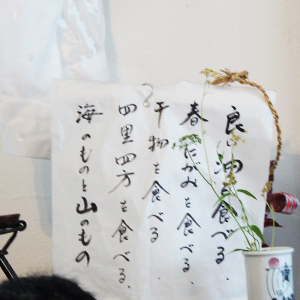 良い油を食べる、
春にがみを食べる、
干物を食べる、
四里四方を食べる、
海のものと山のもの